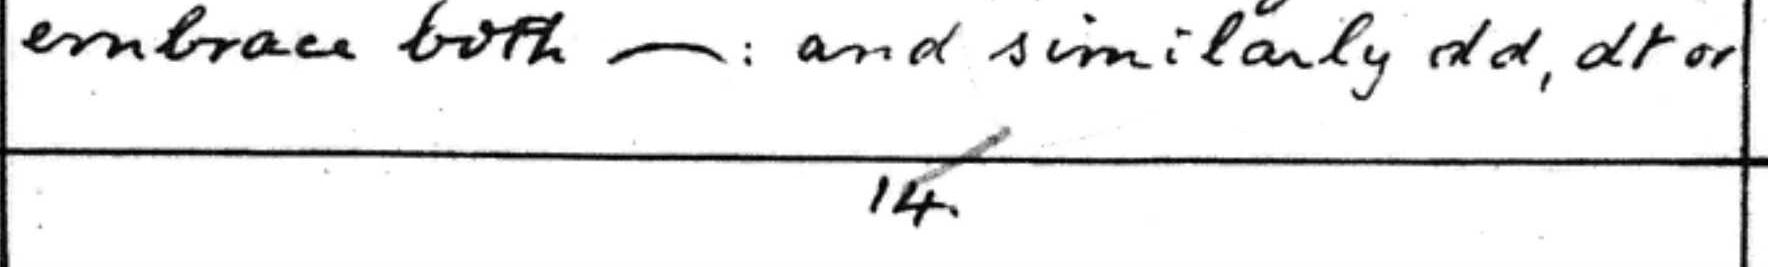 embrace both —: and similarly dd, dt or
14.